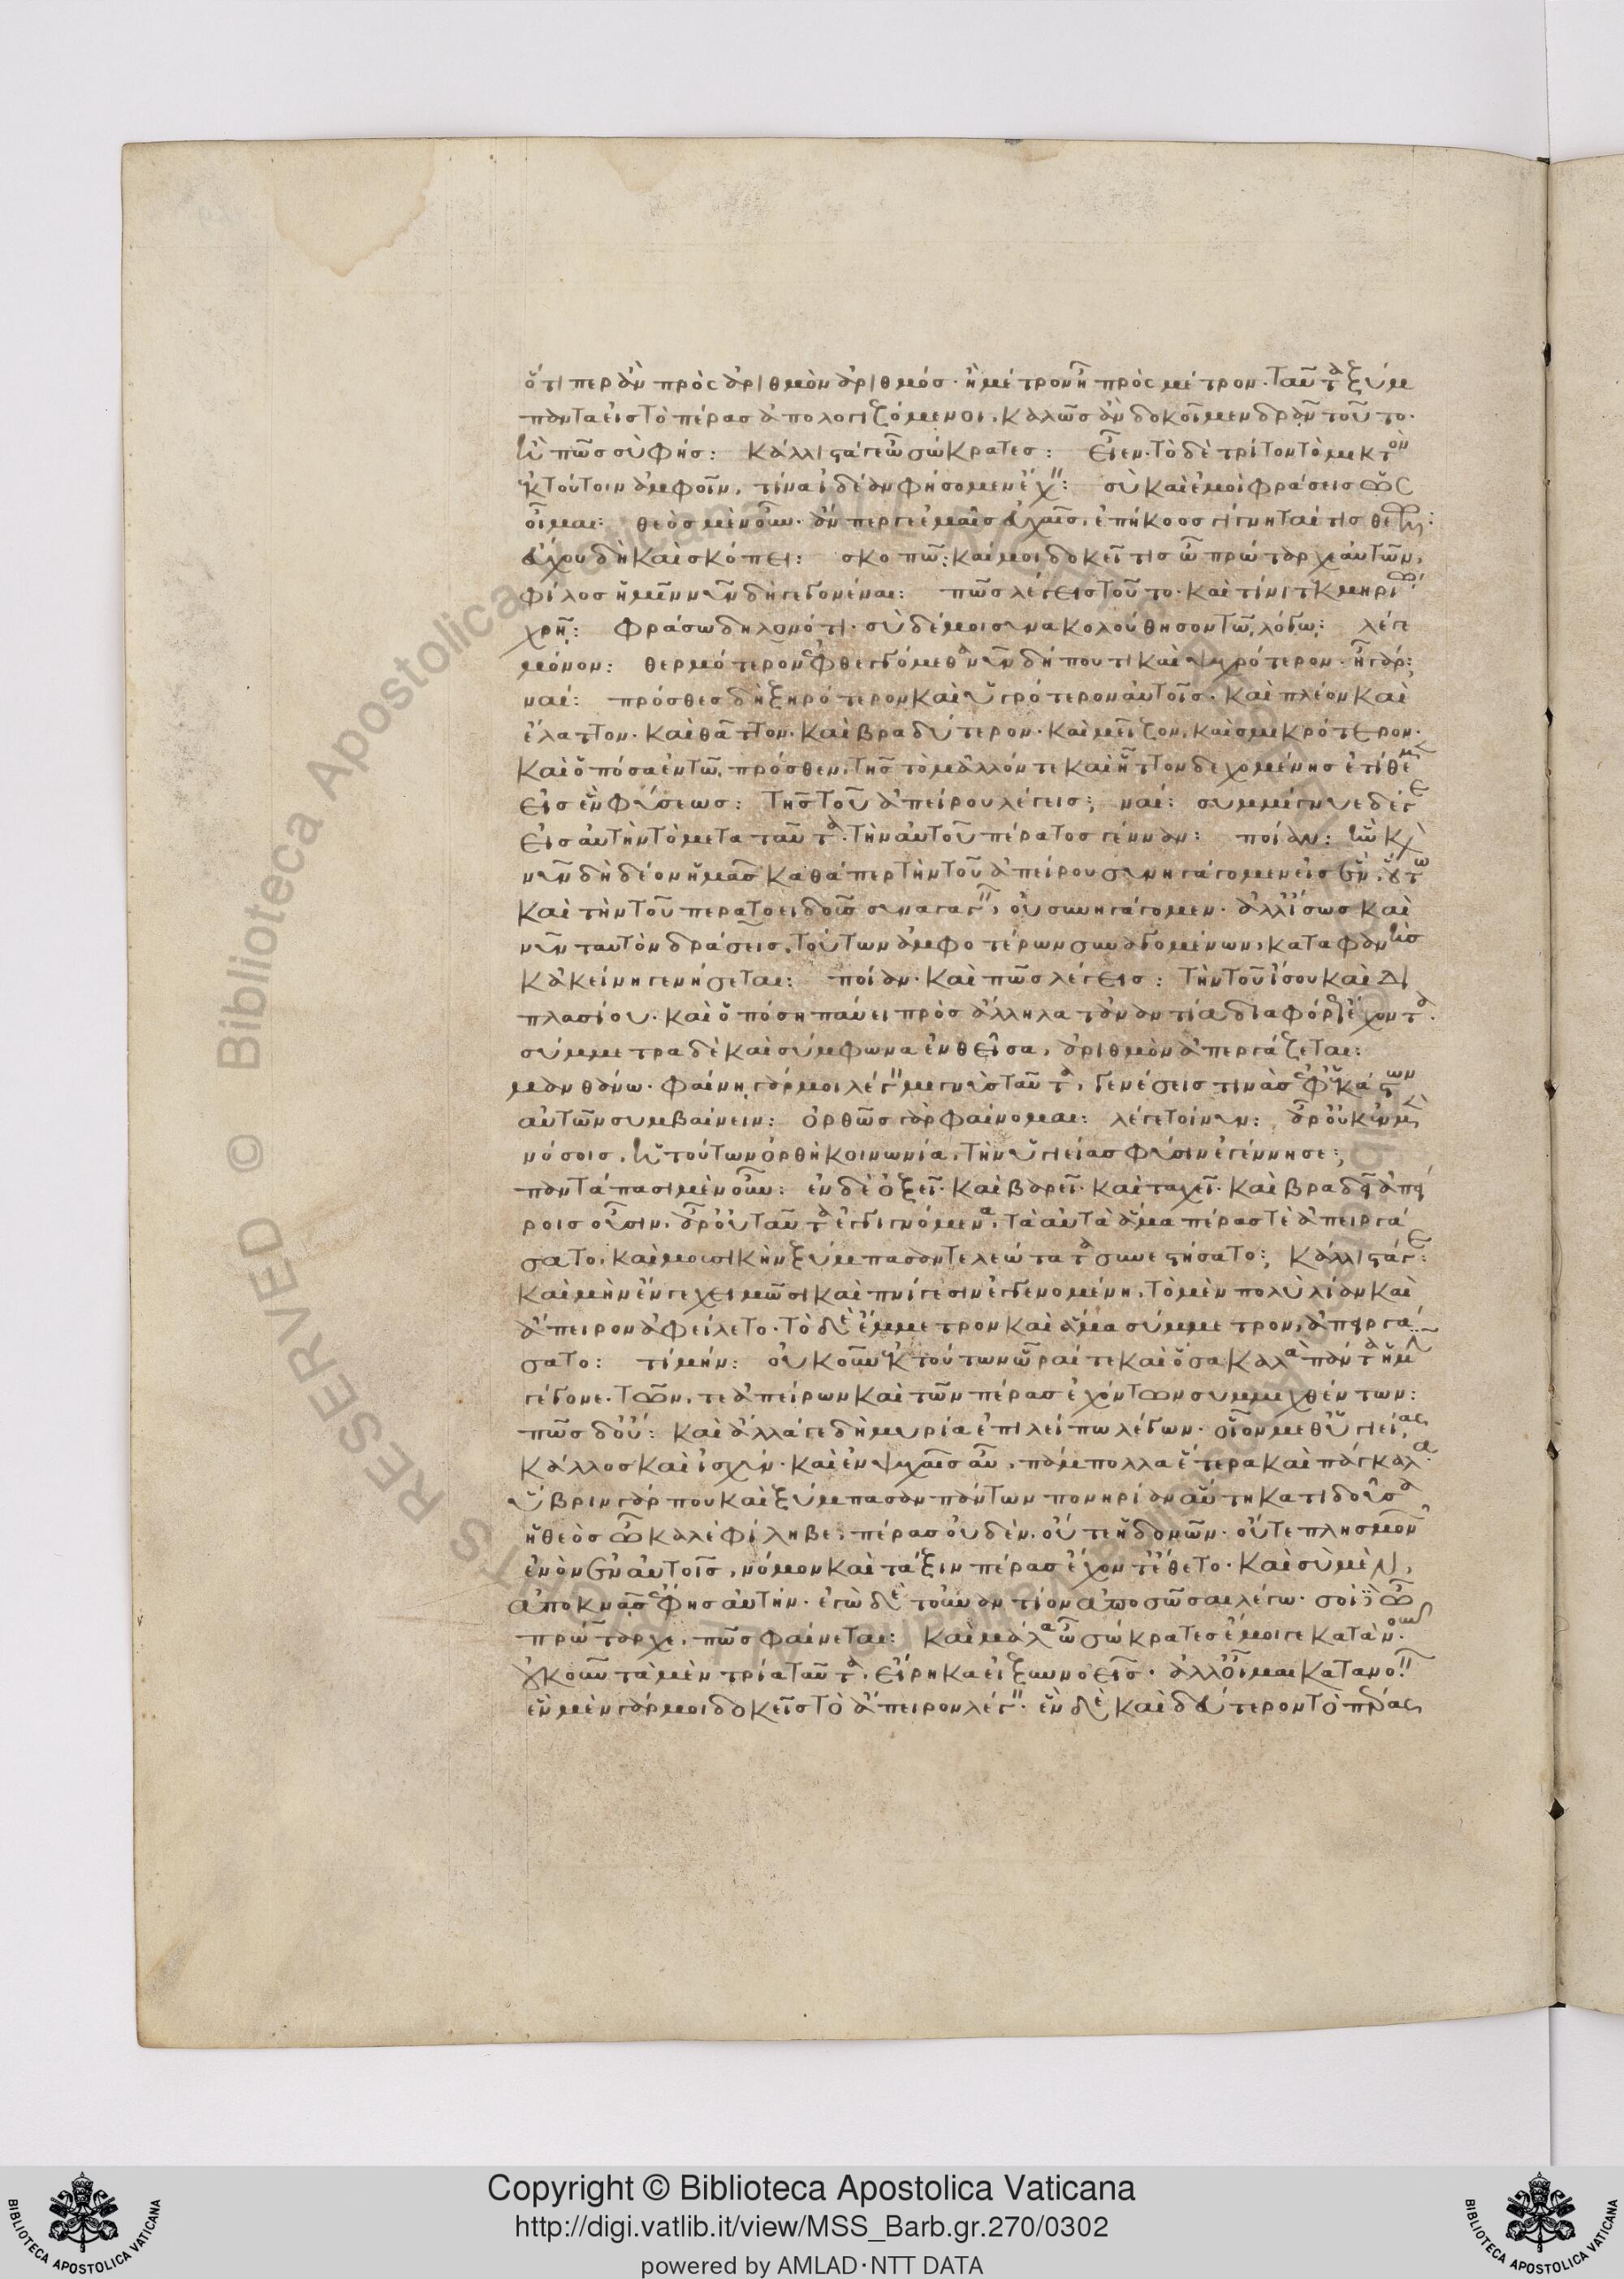 ὅτι περ ἂν πρὸς ἀριθμὸν ἀριθμός· ἢ μέτρον ἢ πρὸς μέτρον· ταῦτα ξύμ
παντα εἰς τὸ πέρας ἀπολογιζόμενοι, καλῶς ἂν δοκοῖμεν δρᾶν τοῦτο·
ἢ πῶς σὺ φής: κάλλιστά γε ὦ σώκρατες: εἶεν· τὸ δὲ τρίτον τὸ μεικτὸν
ἐκ τούτοιν ἀμφοῖν, τίνα ἰδέαν φήσομεν ἔχειν: σὺ καὶ ἐμοὶ φράσεις ὡς
οἶμαι: θεὸς μὲν οὖν· ἄν πέρ γε ἐμαῖς εὐχαῖς, ἐπήκοος γίγνηταί τις θεῶν:
εὔχου δὴ καὶ σκόπει: σκοπῶ: καί μοι δοκεῖ τις ὦ πρώταρχε αὐτῶν,
φίλος ἡμῖν νῦν δὴ γεγονέναι: πῶς λέγεις τοῦτο· καὶ τίνι τεκμηρίῳ
χρῇ: φράσω δηλονότι· σὺ δέ μοι συνακολούθησον τῷ λόγῳ: λέγε
μόνον: θερμότερον ἐφθεγγόμεθα νῦν δή που τι καὶ ψυχρότερον· ἦ γάρ:
ναί: πρόσθες δὴ ξηρότερον καὶ ὑγρότερον αὐτοῖς· καὶ πλέον καὶ
ἔλαττον· καὶ θᾶττον· καὶ βραδύτερον· καὶ μεῖζον, καὶ σμικρότερον·
καὶ ὁπόσα ἐν τῷ πρόσθεν, τῆς τὸ μᾶλλόν τε καὶ ἧττον δεχομένης ἐτίθεμεν
εἰς ἓν φύσεως: τῆς τοῦ ἀπείρου λέγεις; ναί: συμμίγνυε δέ γε
εἰς αὐτὴν τὸ μετὰ ταῦτα· τὴν αὐτοῦ πέρατος γένναν: ποίαν: ἣν καὶ
νῦν δὴ δέον ἡμᾶς καθάπερ τὴν τοῦ ἀπείρου συνηγάγομεν εἰς ἕν, οὕτω
καὶ τὴν τοῦ περατοειδοῦς συναγαγεῖν, οὐ συνηγάγομεν· ἀλλ' ἴσως καὶ
νῦν ταυτὸν δράσεις, τούτων ἀμφοτέρων συναγομένων, καταφανὴς
κἀκείνη γενήσεται: ποίαν· καὶ πῶς λέγεις: τὴν τοῦ ἴσου καὶ δι
πλασίου· καὶ ὁπόση παύει πρὸς ἄλληλα τἀναντία διαφόρως ἔχοντα·
σύμμετρα δὲ καὶ σύμφωνα ἐνθεῖσα, ἀριθμὸν ἀπεργάζεται:
μανθάνω· φαίνῃ γάρ μοι λέγειν μιγνὺς ταῦτα, γενέσεις τινὰς ἐφ' ἑκάστων
αὐτῶν συμβαίνειν: ὀρθῶς γὰρ φαίνομαι: λέγε τοίνυν: ἆρ' οὐκ ἐν μὲν
νόσοις, ἡ τούτων ὀρθὴ κοινωνία, τὴν ὑγιείας φύσιν ἐγέννησε;
παντάπασι μὲν οὖν: ἐν δὲ ὀξεῖ· καὶ βαρεῖ· καὶ ταχεῖ· καὶ βραδεῖ ἀπεί
ροις οὖσιν, ἆρ' οὐ ταῦτα ἐγγιγνόμενα, τὰ αὐτὰ ἅμα πέρας τὲ ἀπειργά
σατο, καὶ μουσικὴν ξύμπασαν τελεώτατα συνεστήσατο; κάλλιστά γε:
καὶ μὴν ἔν γε χειμῶσι καὶ πνίγεσιν ἐγγενομένη, τὸ μὲν πολὺ λίαν καὶ
ἄπειρον ἀφείλετο· τὸ δὲ ἔμμετρον καὶ ἅμα σύμμετρον, ἀπειργά
σατο: τί μήν: οὐκοῦν ἐκ τούτων ὧραί τε καὶ ὅσα καλὰ πάντα ἡμῖν
γέγονε· τῶν, τε ἀπείρων καὶ τῶν πέρας ἐχόντων συμμιχθέντων:
πῶς δ' οὔ: καὶ ἄλλά γε δὴ μυρία ἐπιλείπω λέγων· οἷον μεθ' ὑγιείας,
κάλλος καὶ ἰσχύν· καὶ ἐν ψυχαῖς αὖ, πάμπολλα ἕτερα καὶ πάγκαλα·
ὕβριν γάρ που καὶ ξύμπασαν πάντων πονηρίαν αὕτη κατιδοῦσα
ἡ θεὸς ὦ καλὲ φίληβε, πέρας οὐδὲν, οὔτε ἡδονῶν· οὔτε πλησμονῶν
ἐνὸν ἐν αὐτοῖς, νόμον καὶ τάξιν πέρας ἔχοντ' ἔθετο· καὶ σὺ μὲν,
ἀποκναῖς ἔφης αὐτήν· ἐγὼ δὲ τοὐναντίον ἀποσῶσαι λέγω· σοὶ δὲ ὦ
πρώταρχε, πῶς φαίνεται: καὶ μάλα ὦ σώκρατες ἔμοιγε κατὰ νοῦν·
οὐκοῦν τὰ μὲν τρία ταῦτα, εἴρηκα εἰ ξυννοεῖς· ἀλλ' οἶμαι κατανοεῖν·
ἓν μὲν γάρ μοι δοκεῖς τὸ ἄπειρον λέγειν· ἓν δὲ καὶ δεύτερον τὸ πέρας
Copyright © Biblioteca Apostolica Vaticana
http://digi.vatlib.it/view/MSS_Barb.gr.270/0302
powered by AMLAD·NTT DATA